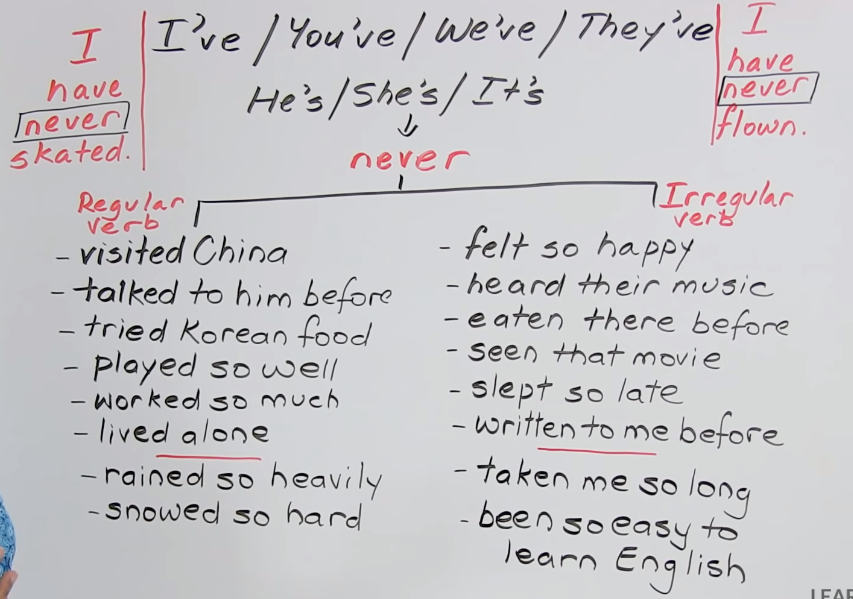 I
have
never
skated.
I've / You've / We've / They've
He's / She's / It's
never
I
have
never
flown.
Regular
verb
- visited China
- talked to him before
- tried Korean food
- played so well
- worked so much
- lived alone
- rained so heavily
- snowed so hard
Irregular
verb
- felt so happy
- heard their music
- eaten there before
- seen that movie
- slept so late
- written to me before
- taken me so long
- been so easy to
learn English